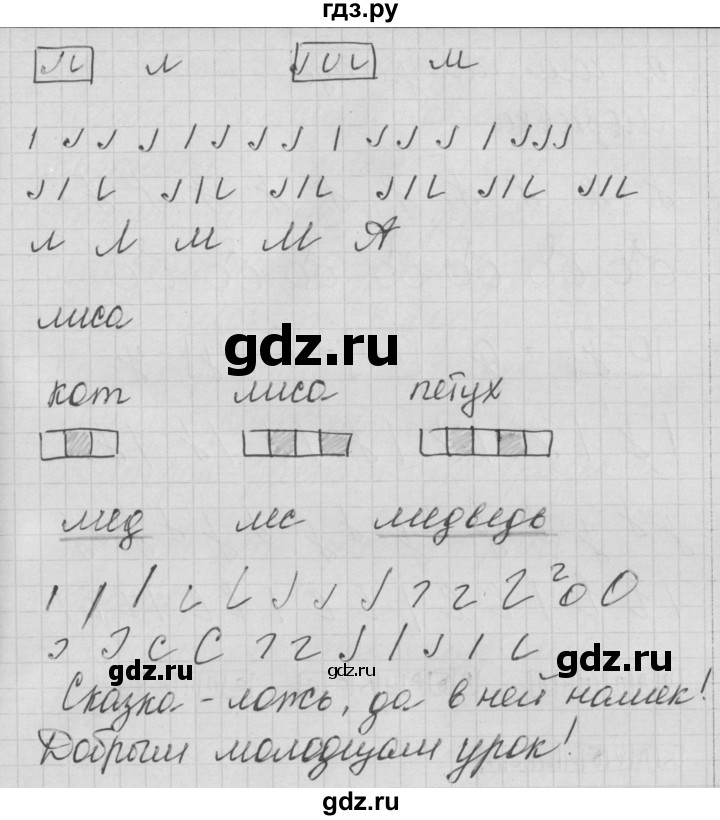 гдз.ру
л м
л Л м М А
лиса
gdz.ru
кот лиса петух
мед лес медведь
gdz.ru gdz.ru
Сказка - ложь, да в ней намек!
Добрым молодцам урок!
gdz.ru